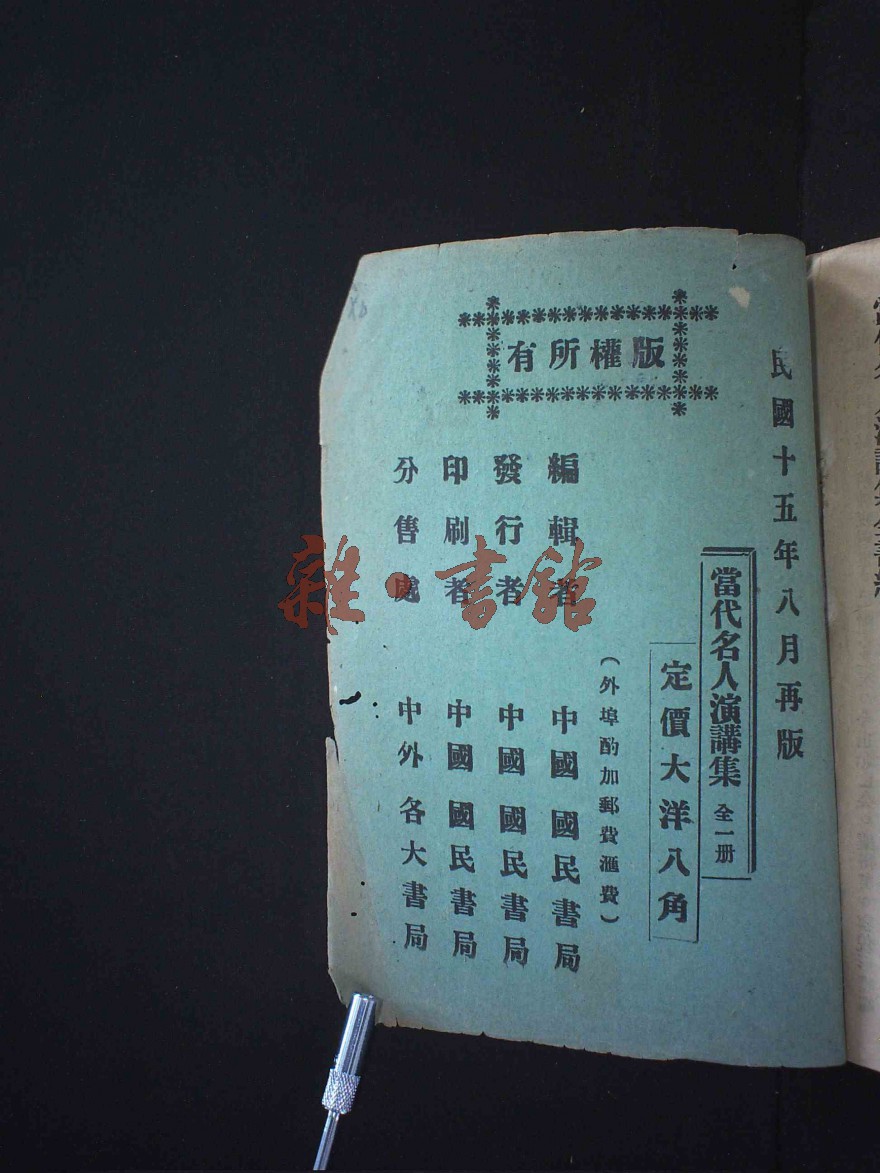 民國十五年八月再版
當代名人演講集 全一册
定價大洋八角
（外埠酌加郵費滙費）
版權所有
編輯者 中國國民書局
發行者 中國國民書局
印刷者 中國國民書局
分售處 中外各大書局
雜·書館